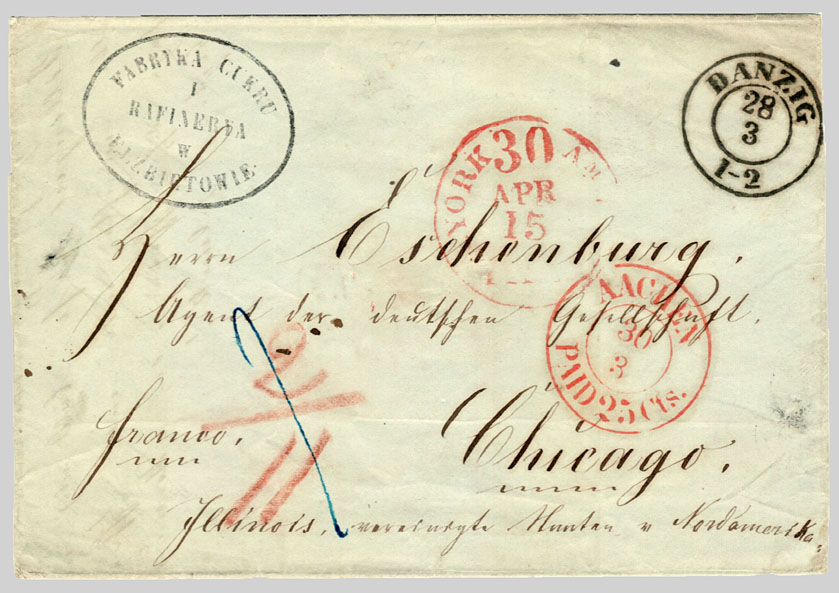 FABRYKA CUKRU
I
RAFINERYA
W
ELZBIETOWIE
DANZIG
28
3
1-2
YORK 30 AM
APR
15
Herrn Eschenburg.
Agent der deutschen Gesellschaft.
AACHEN
30
3
PAID 25 Cts.
franco,
Chicago.
Illinois, vereinigte Staaten v Nordamerika.